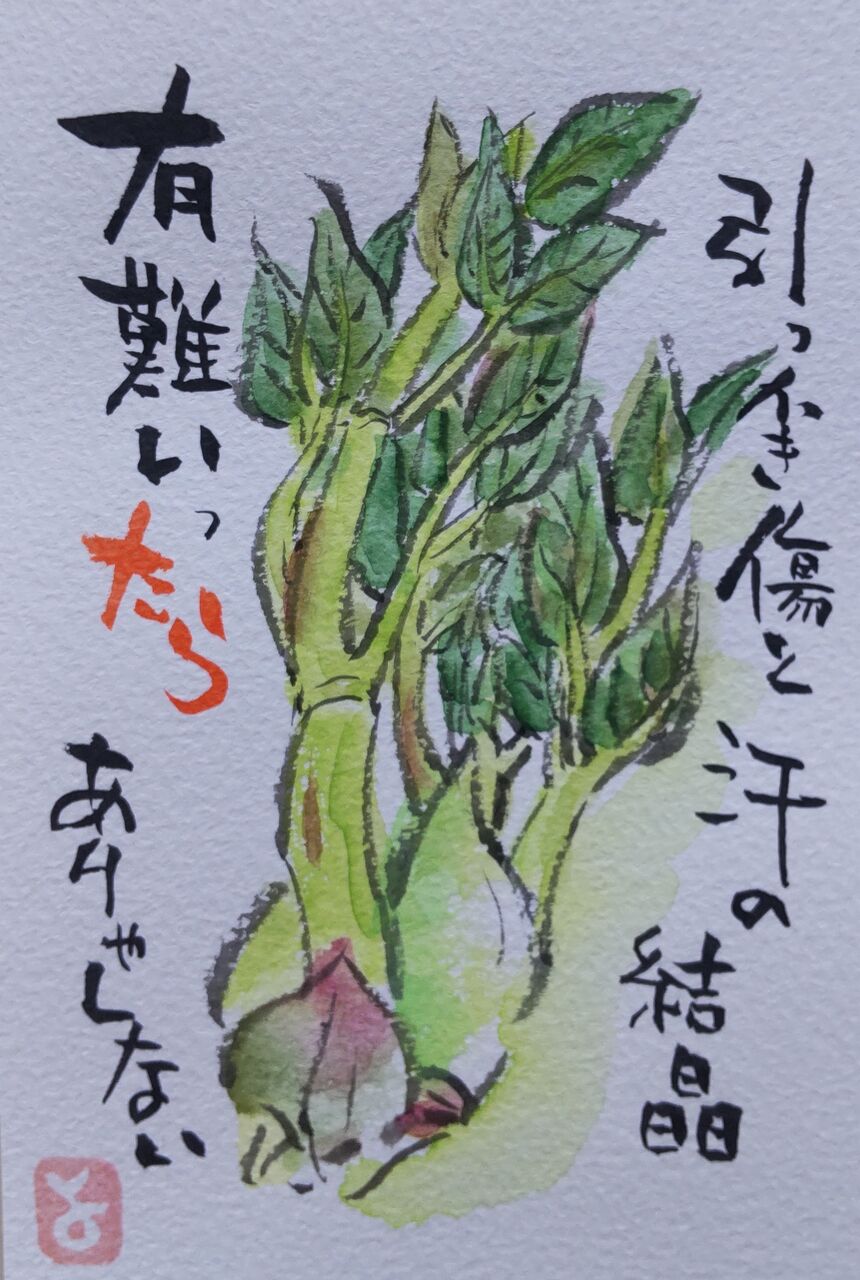 引っかき傷と汗の
結晶
有難いったら
ありゃしない
よ